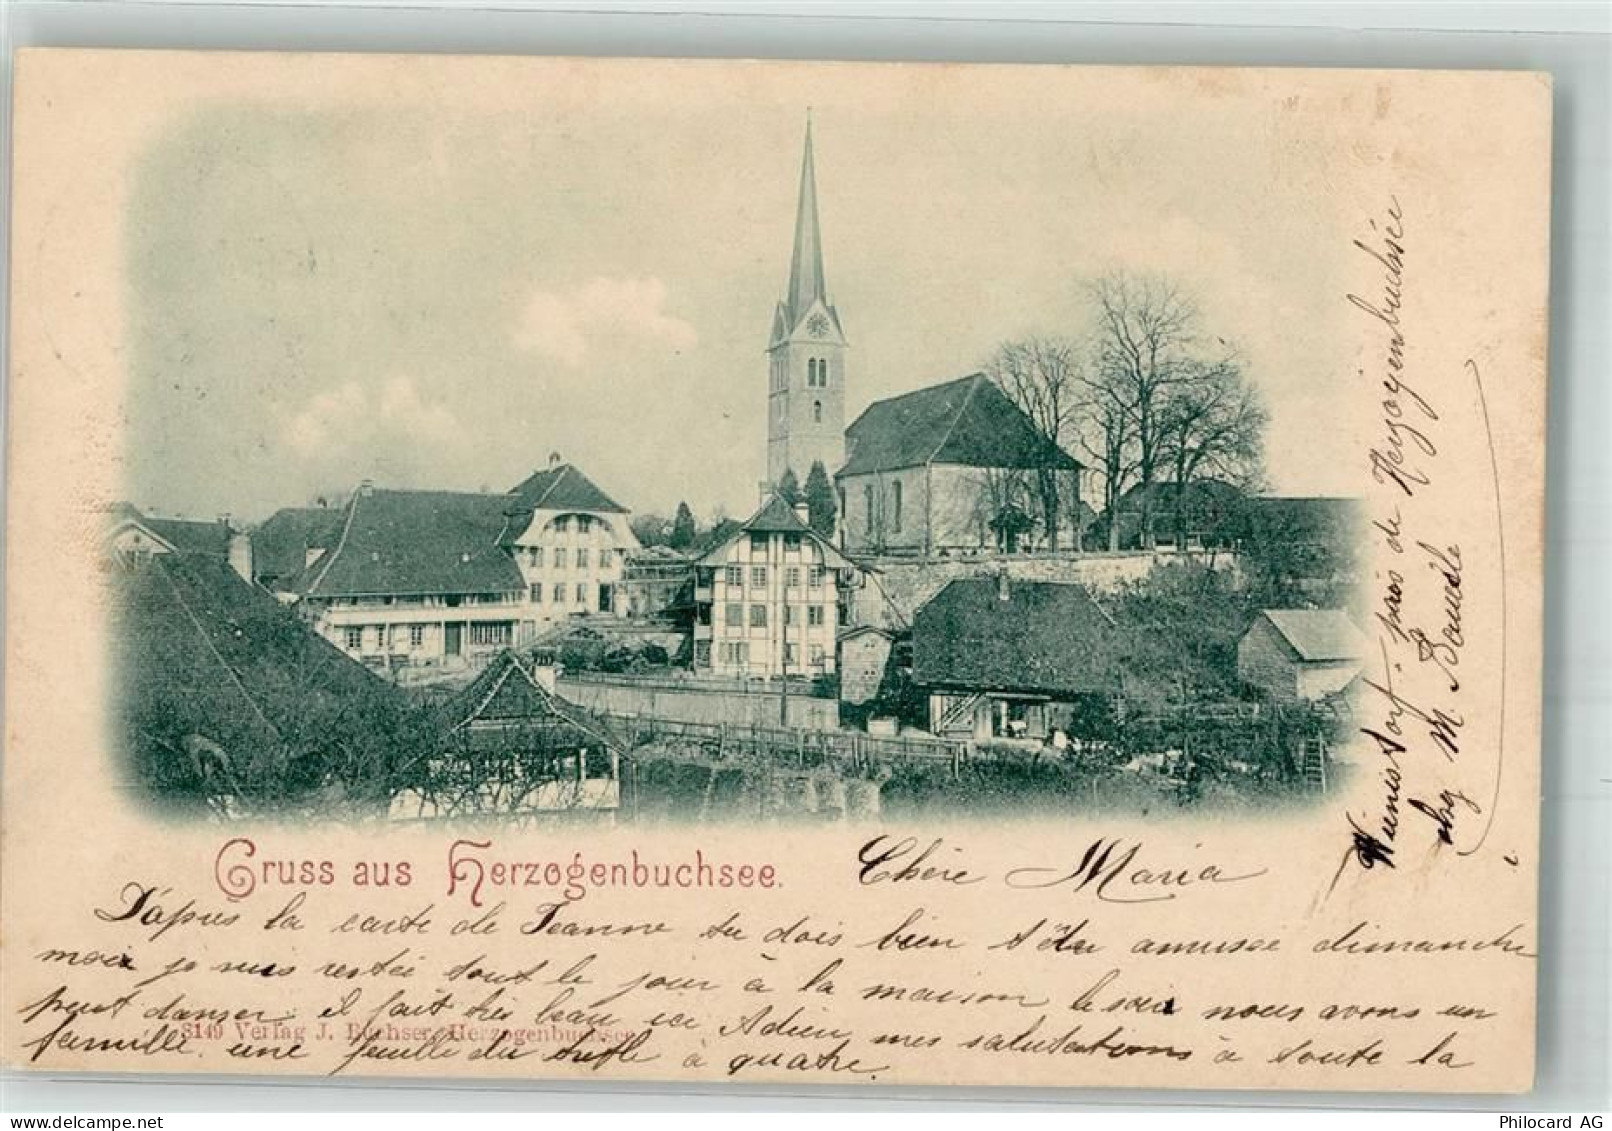 Gruss aus Herzogenbuchsee.
Chère Maria
D'apres la carte de Jeanne tu dois bien t'être amusée dimanche
moi je suis restée tout le jour à la maison le soir nous avons un
peut danser. il fait très beau ici Adieu, mes salutations à toute la
famille. une feuille du trèfle à quatre.
8149 Verlag J. Buchser, Herzogenbuchsee
près de Herzogenbuchsée
chez M.
Philocard AG